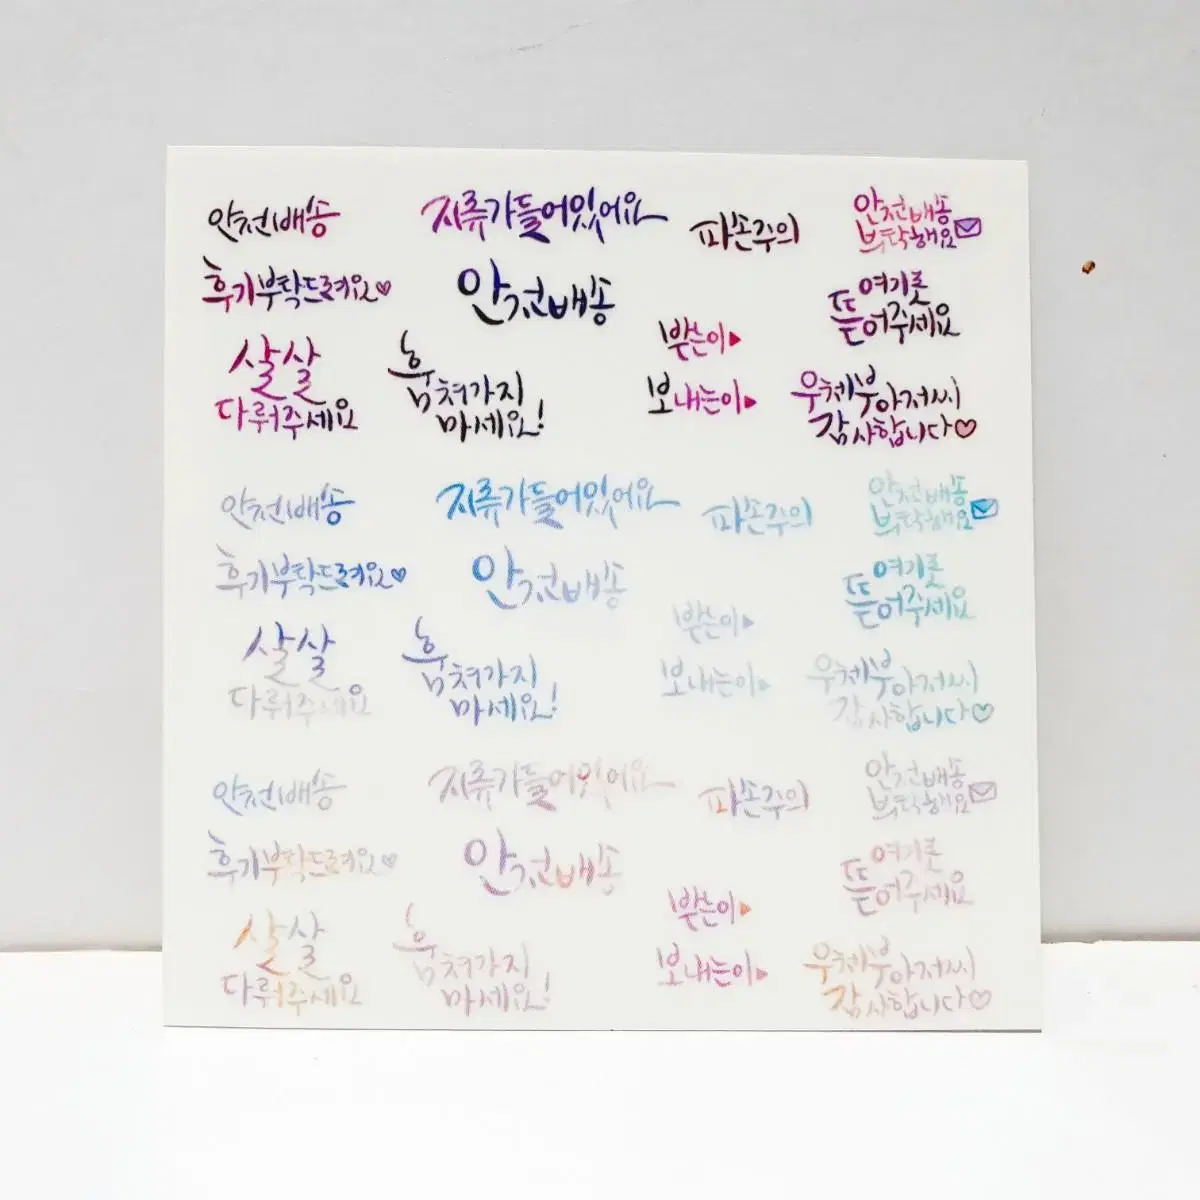 안전배송
지류가들어있어요
파손주의
안전배송
부탁해요
후기부탁드려요
안전배송
여기를
뜯어주세요
살살
다뤄주세요
훔쳐가지
마세요!
받는이
보내는이
우체부아저씨
감사합니다
안전배송
지류가들어있어요
파손주의
안전배송
부탁해요
후기부탁드려요
안전배송
여기를
뜯어주세요
살살
다뤄주세요
훔쳐가지
마세요!
받는이
보내는이
우체부아저씨
감사합니다
안전배송
지류가들어있어요
파손주의
안전배송
부탁해요
후기부탁드려요
안전배송
여기를
뜯어주세요
살살
다뤄주세요
훔쳐가지
마세요!
받는이
보내는이
우체부아저씨
감사합니다